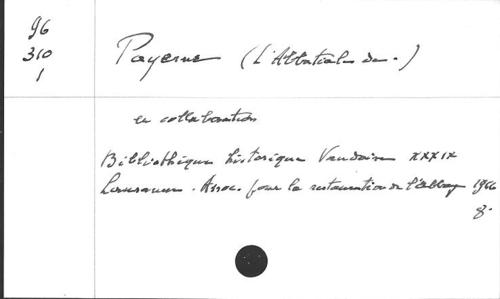 96
310
1
Payerne (L'Abbatiale de.)
en collaboration
Bibliothèque historique Vaudoise XXXIX
Lausanne. Assoc. pour la restauration de l'Abbaye 1966
8.